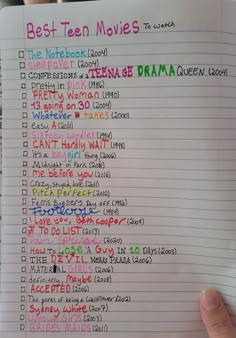 Best Teen Movies To watch
The Notebook (2004)
Sleepover (2004)
CONFESSIONS of a TEENAGE DRAMA QUEEN (2004)
pretty in PINK (1986)
PRETTY Woman (1990)
13 going on 30 (2004)
Whatever it takes (2000)
Easy A (2010)
Sixteen candles (1984)
CAN'T Hardly WAIT (1998)
it's a boy girl thing (2006)
Midnight in Paris (2011)
me before you (2016)
Crazy, stupid, love (2011)
Pitch perfect (2012)
Ferris Buellers Day off (1986)
Footloose (1984)
I Love you, Beth cooper (2009)
TO DO LIST (2013)
(2020)
HOW To LOSE A GUY IN 10 DAYS (2003)
THE DEVIL WEARS PRADA (2006)
MATERIAL GIRLS (2006)
definitely, Maybe (2008)
ACCEPTED (2006)
The perks of being a wallflower (2012)
Sydney White (2007)
GIRLS (2003)
BRIDES MAIDS (2011)